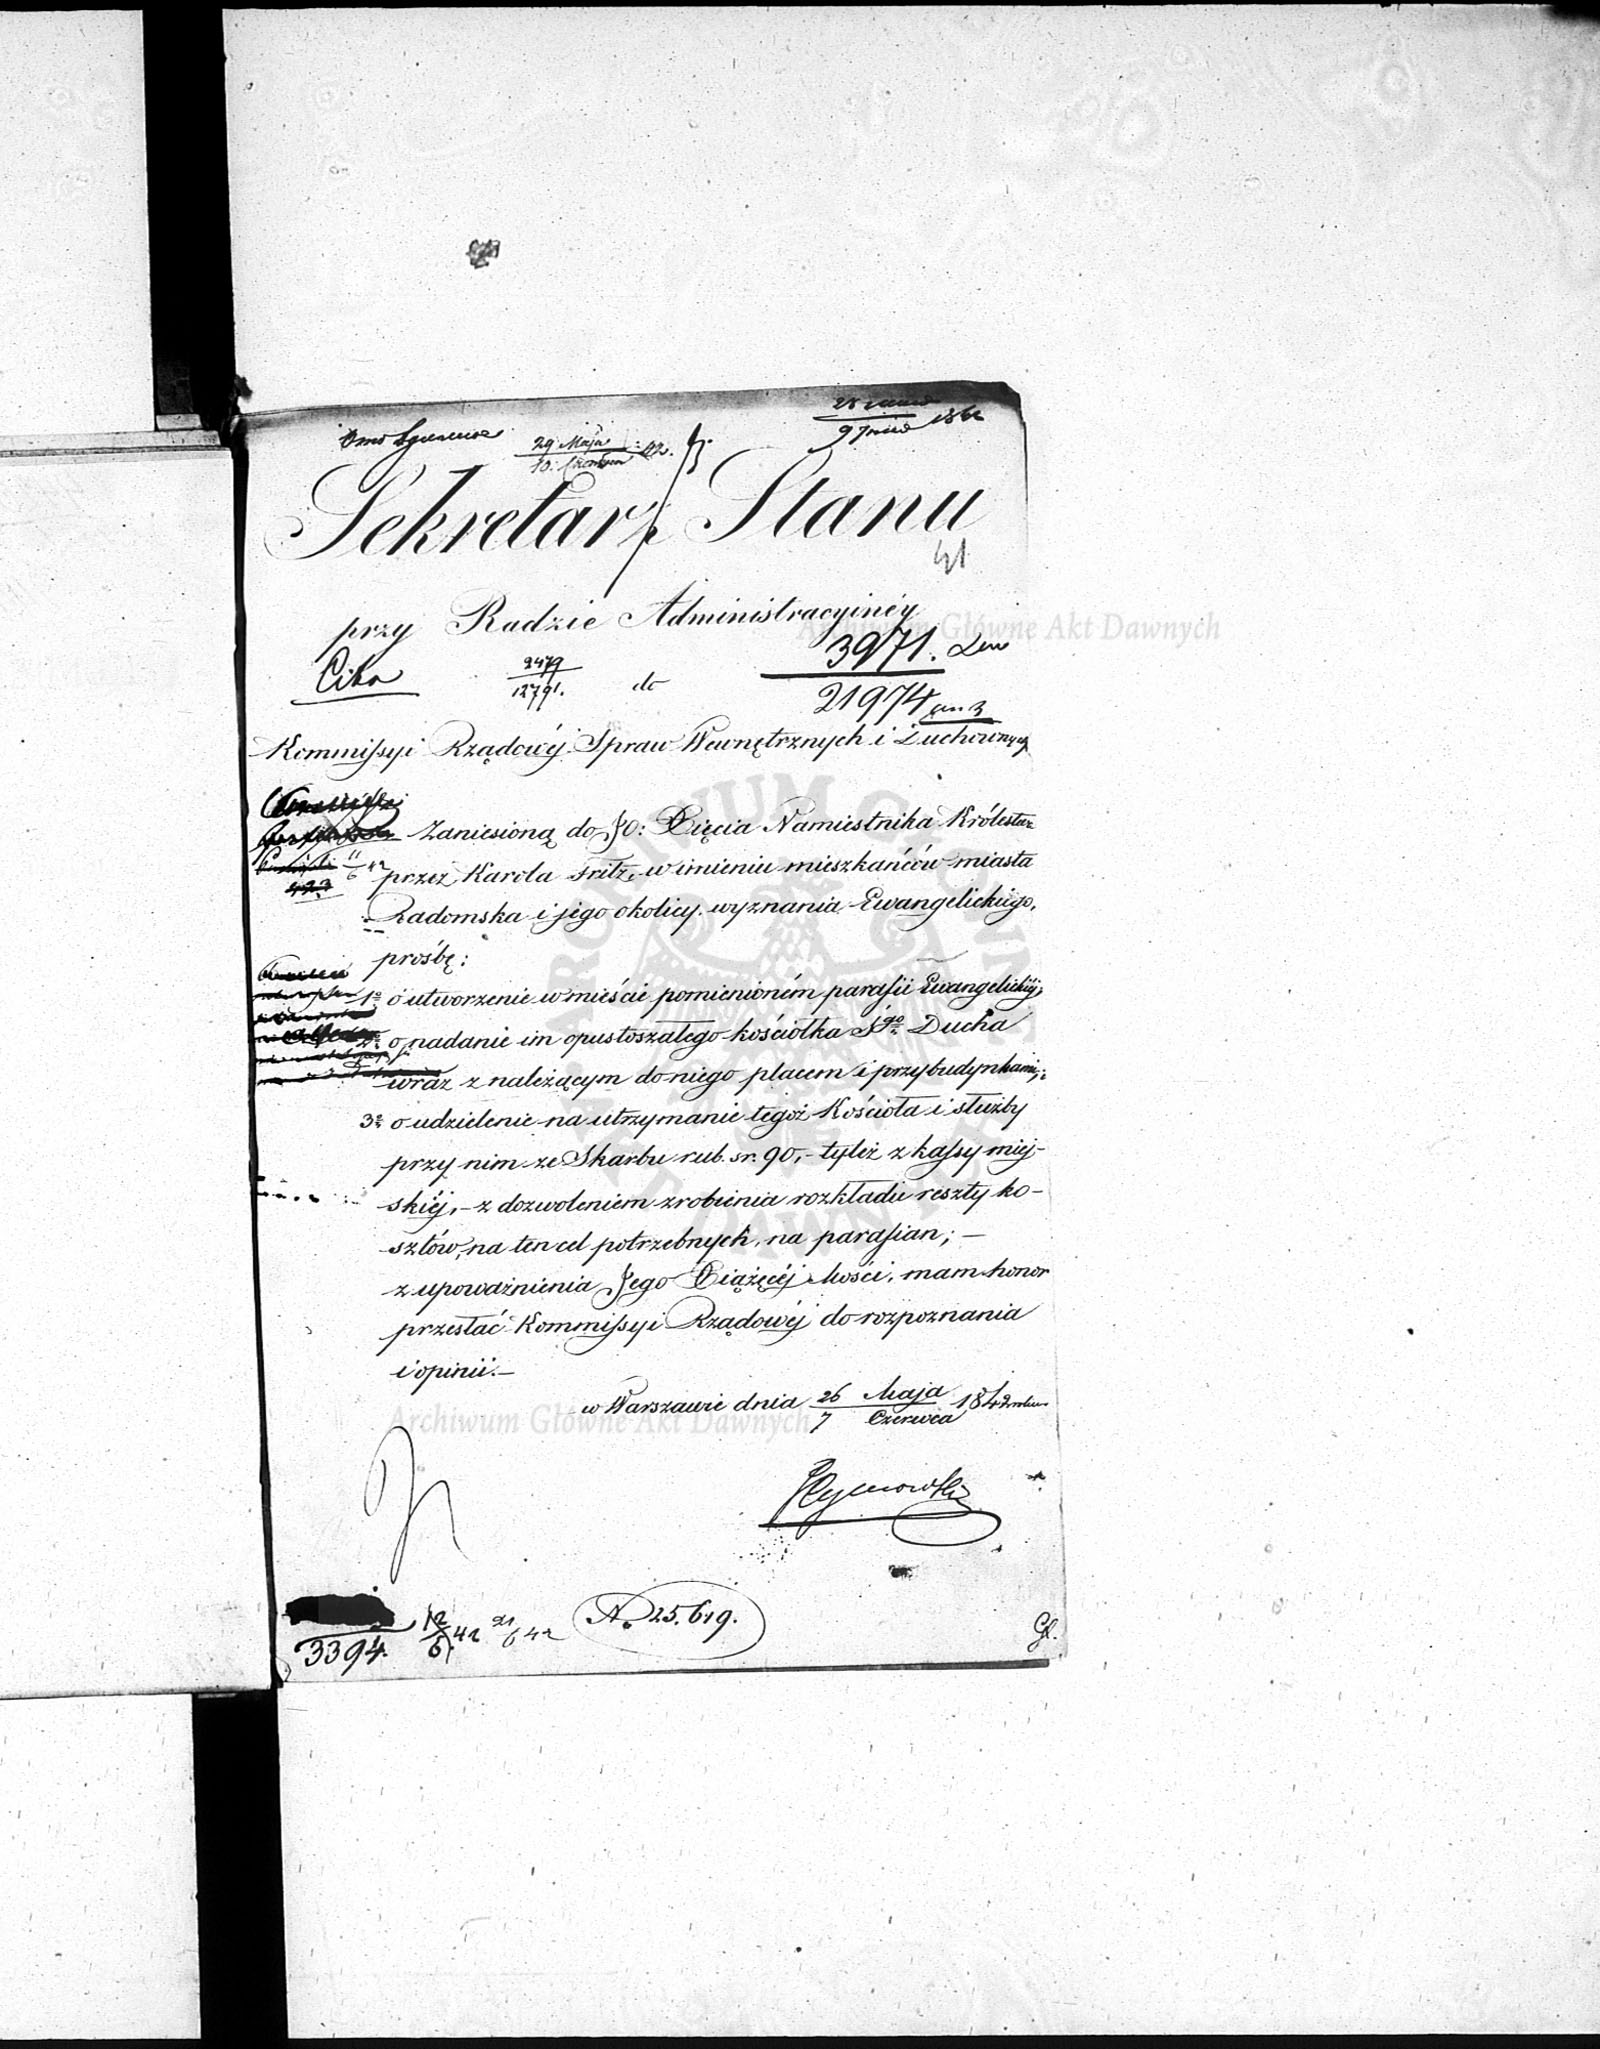 29 Maja
10. Czerwca 42.
9 Junio 1842
Sekretarz Stanu
41
przy Radzie Administracyinéy
3971.
9479
12791.
do
21974
Kommissyi Rządowéj Spraw Wewnętrznych i Duchownych
Zaniesioną do JO: Xięcia Namiestnika Królestwa
11
6 42
przez Karola Fritz, w imieniu mieszkańców miasta
423
Radomska i jego okolicy wyznania Ewangelickiego,
prośbę:
1º o utworzenie w mieście pomienioném parafii Ewangelickiéj,
2º o nadanie im opustoszałego kościółka Sgo Ducha
wraz z należącym do niego placem i przybudynkami;
3º o udzielenie na utrzymanie tegoż Kościoła i służby
przy nim ze Skarbu rub. sr. 90,- tyleż z kassy miej-
skiéj,- z dozwoleniem zrobienia rozkładu reszty ko-
sztów, na ten cel potrzebnych, na parafian; -
z upoważnienia Jego Xiążęcéj Mości, mam honor
przesłać Kommissyi Rządowéj do rozpoznania
i opinii.-
w Warszawie dnia 26 Maja
7 Czerwca 1842 roku
Tymowski
3394.
12
6 42
21
6 42
N. 25.619.
Gł.
Archiwum Główne Akt Dawnych
Archiwum Główne Akt Dawnych